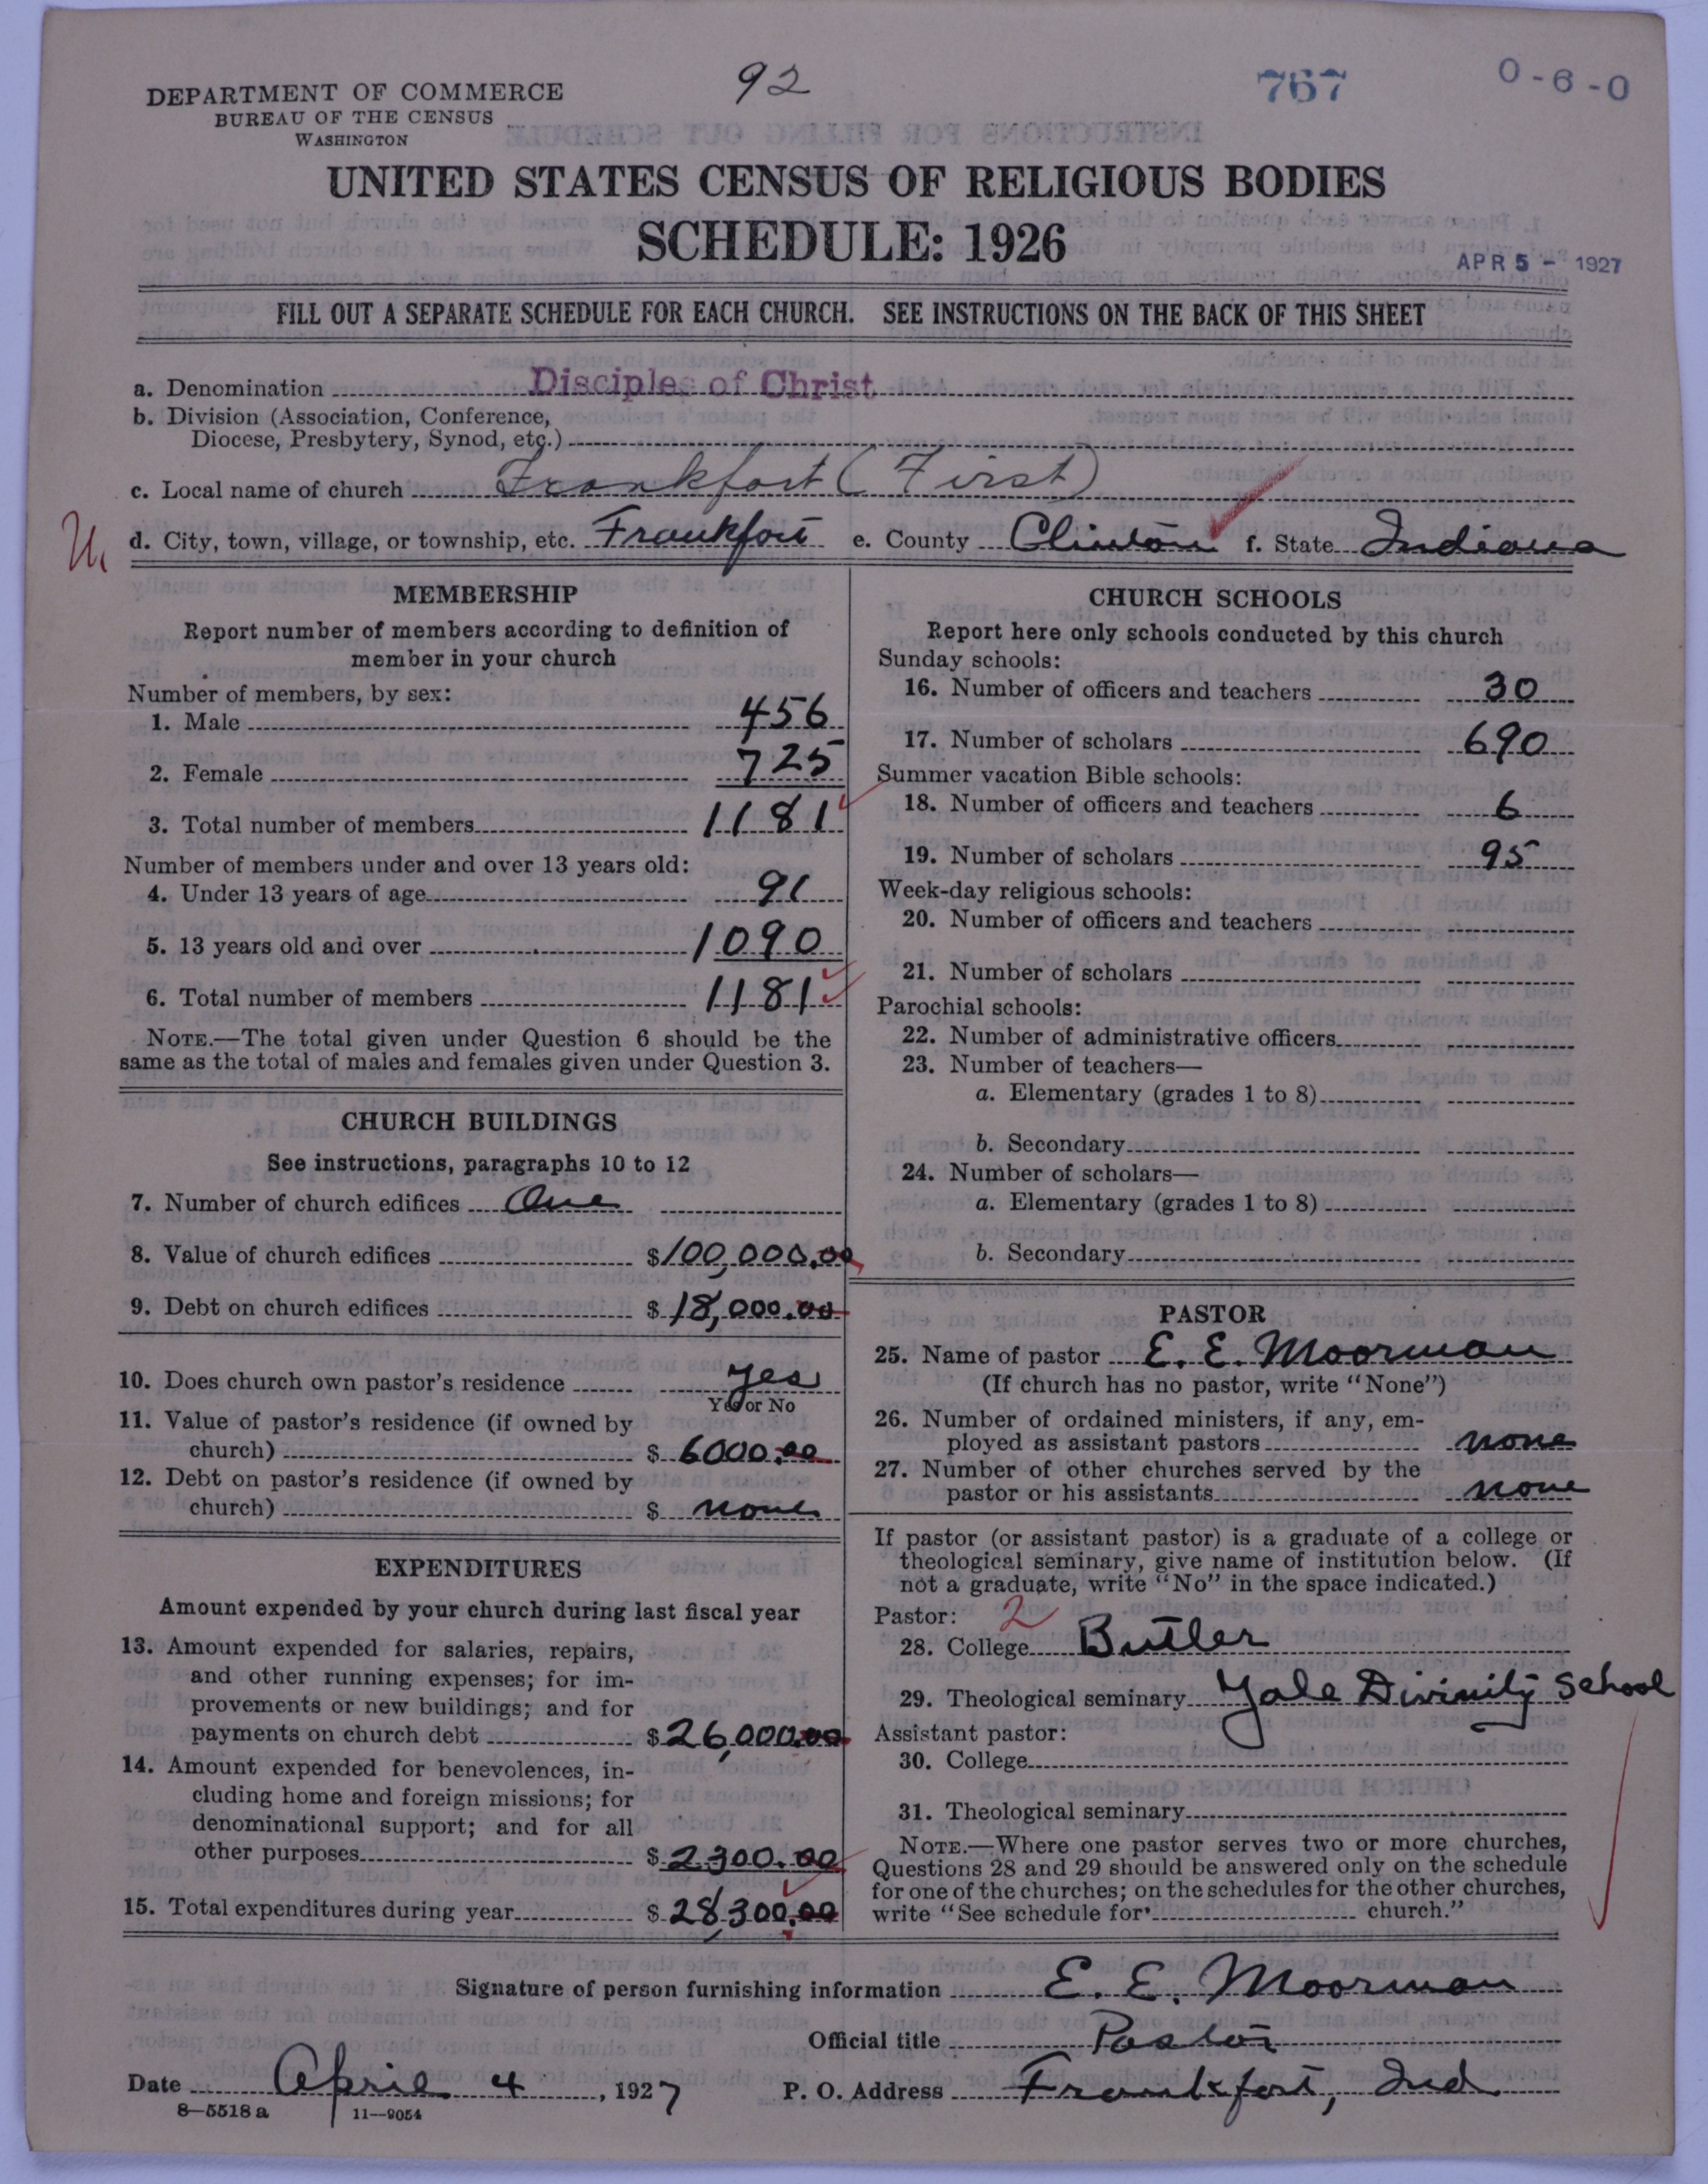 92
767
0-6-0
DEPARTMENT OF COMMERCE
BUREAU OF THE CENSUS
WASHINGTON
UNITED STATES CENSUS OF RELIGIOUS BODIES
SCHEDULE: 1926
APR 5 - 1927
FILL OUT A SEPARATE SCHEDULE FOR EACH CHURCH. SEE INSTRUCTIONS ON THE BACK OF THIS SHEET
a. Denomination Disciples of Christ
b. Division (Association, Conference,
Diocese, Presbytery, Synod, etc.)
c. Local name of church Frankfort (First)
d. City, town, village, or township, etc. Frankfort e. County Clinton f. State Indiana
MEMBERSHIP
Report number of members according to definition of
member in your church
Number of members, by sex:
1. Male 456
2. Female 725
3. Total number of members 1181
Number of members under and over 13 years old:
4. Under 13 years of age 91
5. 13 years old and over 1090
6. Total number of members 1181
NOTE.—The total given under Question 6 should be the
same as the total of males and females given under Question 3.
CHURCH BUILDINGS
See instructions, paragraphs 10 to 12
7. Number of church edifices One
8. Value of church edifices $100,000.00
9. Debt on church edifices $18,000.00
10. Does church own pastor's residence yes
Yes or No
11. Value of pastor's residence (if owned by
church) $6000.00
12. Debt on pastor's residence (if owned by
church) $ none
EXPENDITURES
Amount expended by your church during last fiscal year
13. Amount expended for salaries, repairs,
and other running expenses; for im-
provements or new buildings; and for
payments on church debt $26,000.00
14. Amount expended for benevolences, in-
cluding home and foreign missions; for
denominational support; and for all
other purposes $2300.00
15. Total expenditures during year $28,300.00
CHURCH SCHOOLS
Report here only schools conducted by this church
Sunday schools:
16. Number of officers and teachers 30
17. Number of scholars 690
Summer vacation Bible schools:
18. Number of officers and teachers 6
19. Number of scholars 95
Week-day religious schools:
20. Number of officers and teachers
21. Number of scholars
Parochial schools:
22. Number of administrative officers
23. Number of teachers—
a. Elementary (grades 1 to 8)
b. Secondary
24. Number of scholars—
a. Elementary (grades 1 to 8)
b. Secondary
PASTOR
25. Name of pastor E. E. Moorman
(If church has no pastor, write "None")
26. Number of ordained ministers, if any, em-
ployed as assistant pastors none
27. Number of other churches served by the
pastor or his assistants none
If pastor (or assistant pastor) is a graduate of a college or
theological seminary, give name of institution below. (If
not a graduate, write "No" in the space indicated.)
Pastor: 2
28. College Butler
29. Theological seminary Yale Divinity School
Assistant pastor:
30. College
31. Theological seminary
NOTE.—Where one pastor serves two or more churches,
Questions 28 and 29 should be answered only on the schedule
for one of the churches; on the schedules for the other churches,
write "See schedule for church."
Signature of person furnishing information E. E. Moorman
Official title Pastor
Date April 4, 1927 P. O. Address Frankfort, Ind
8—5518 a 11—9054